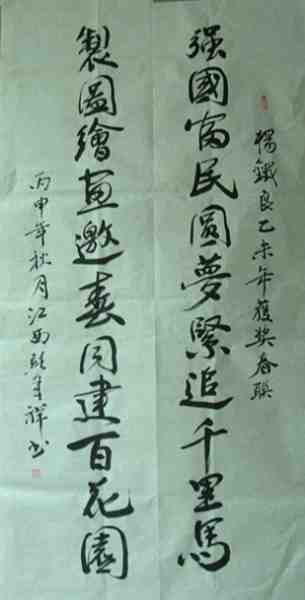 楊鐵良乙未年獲奖春联
强國富民圓夢緊追千里馬
製圖繪画邀春同建百花園
丙申年秋月江西祥书